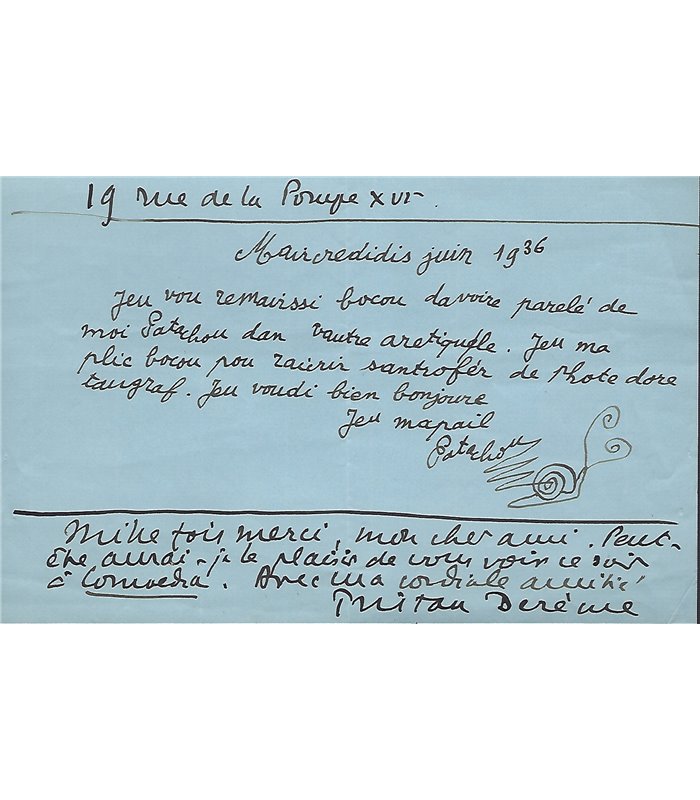 19 rue de la Pompe XVIe
Maircredidis juin 1936
Jeu vou remairssi bocou davoire parelé de
moi Patachou dan vautre aretiquéle. Jeu ma
plic bocou pou zaicrir santrofér de phote dore
taugraf. Jeu voudi bien bonjoure
Jeu mapail
Patachou
Mille fois merci, mon cher ami. Peut-
être aurai-je le plaisir de vous voir ce soir
à Comoedia. Avec ma cordiale amitié
Tristan Derème